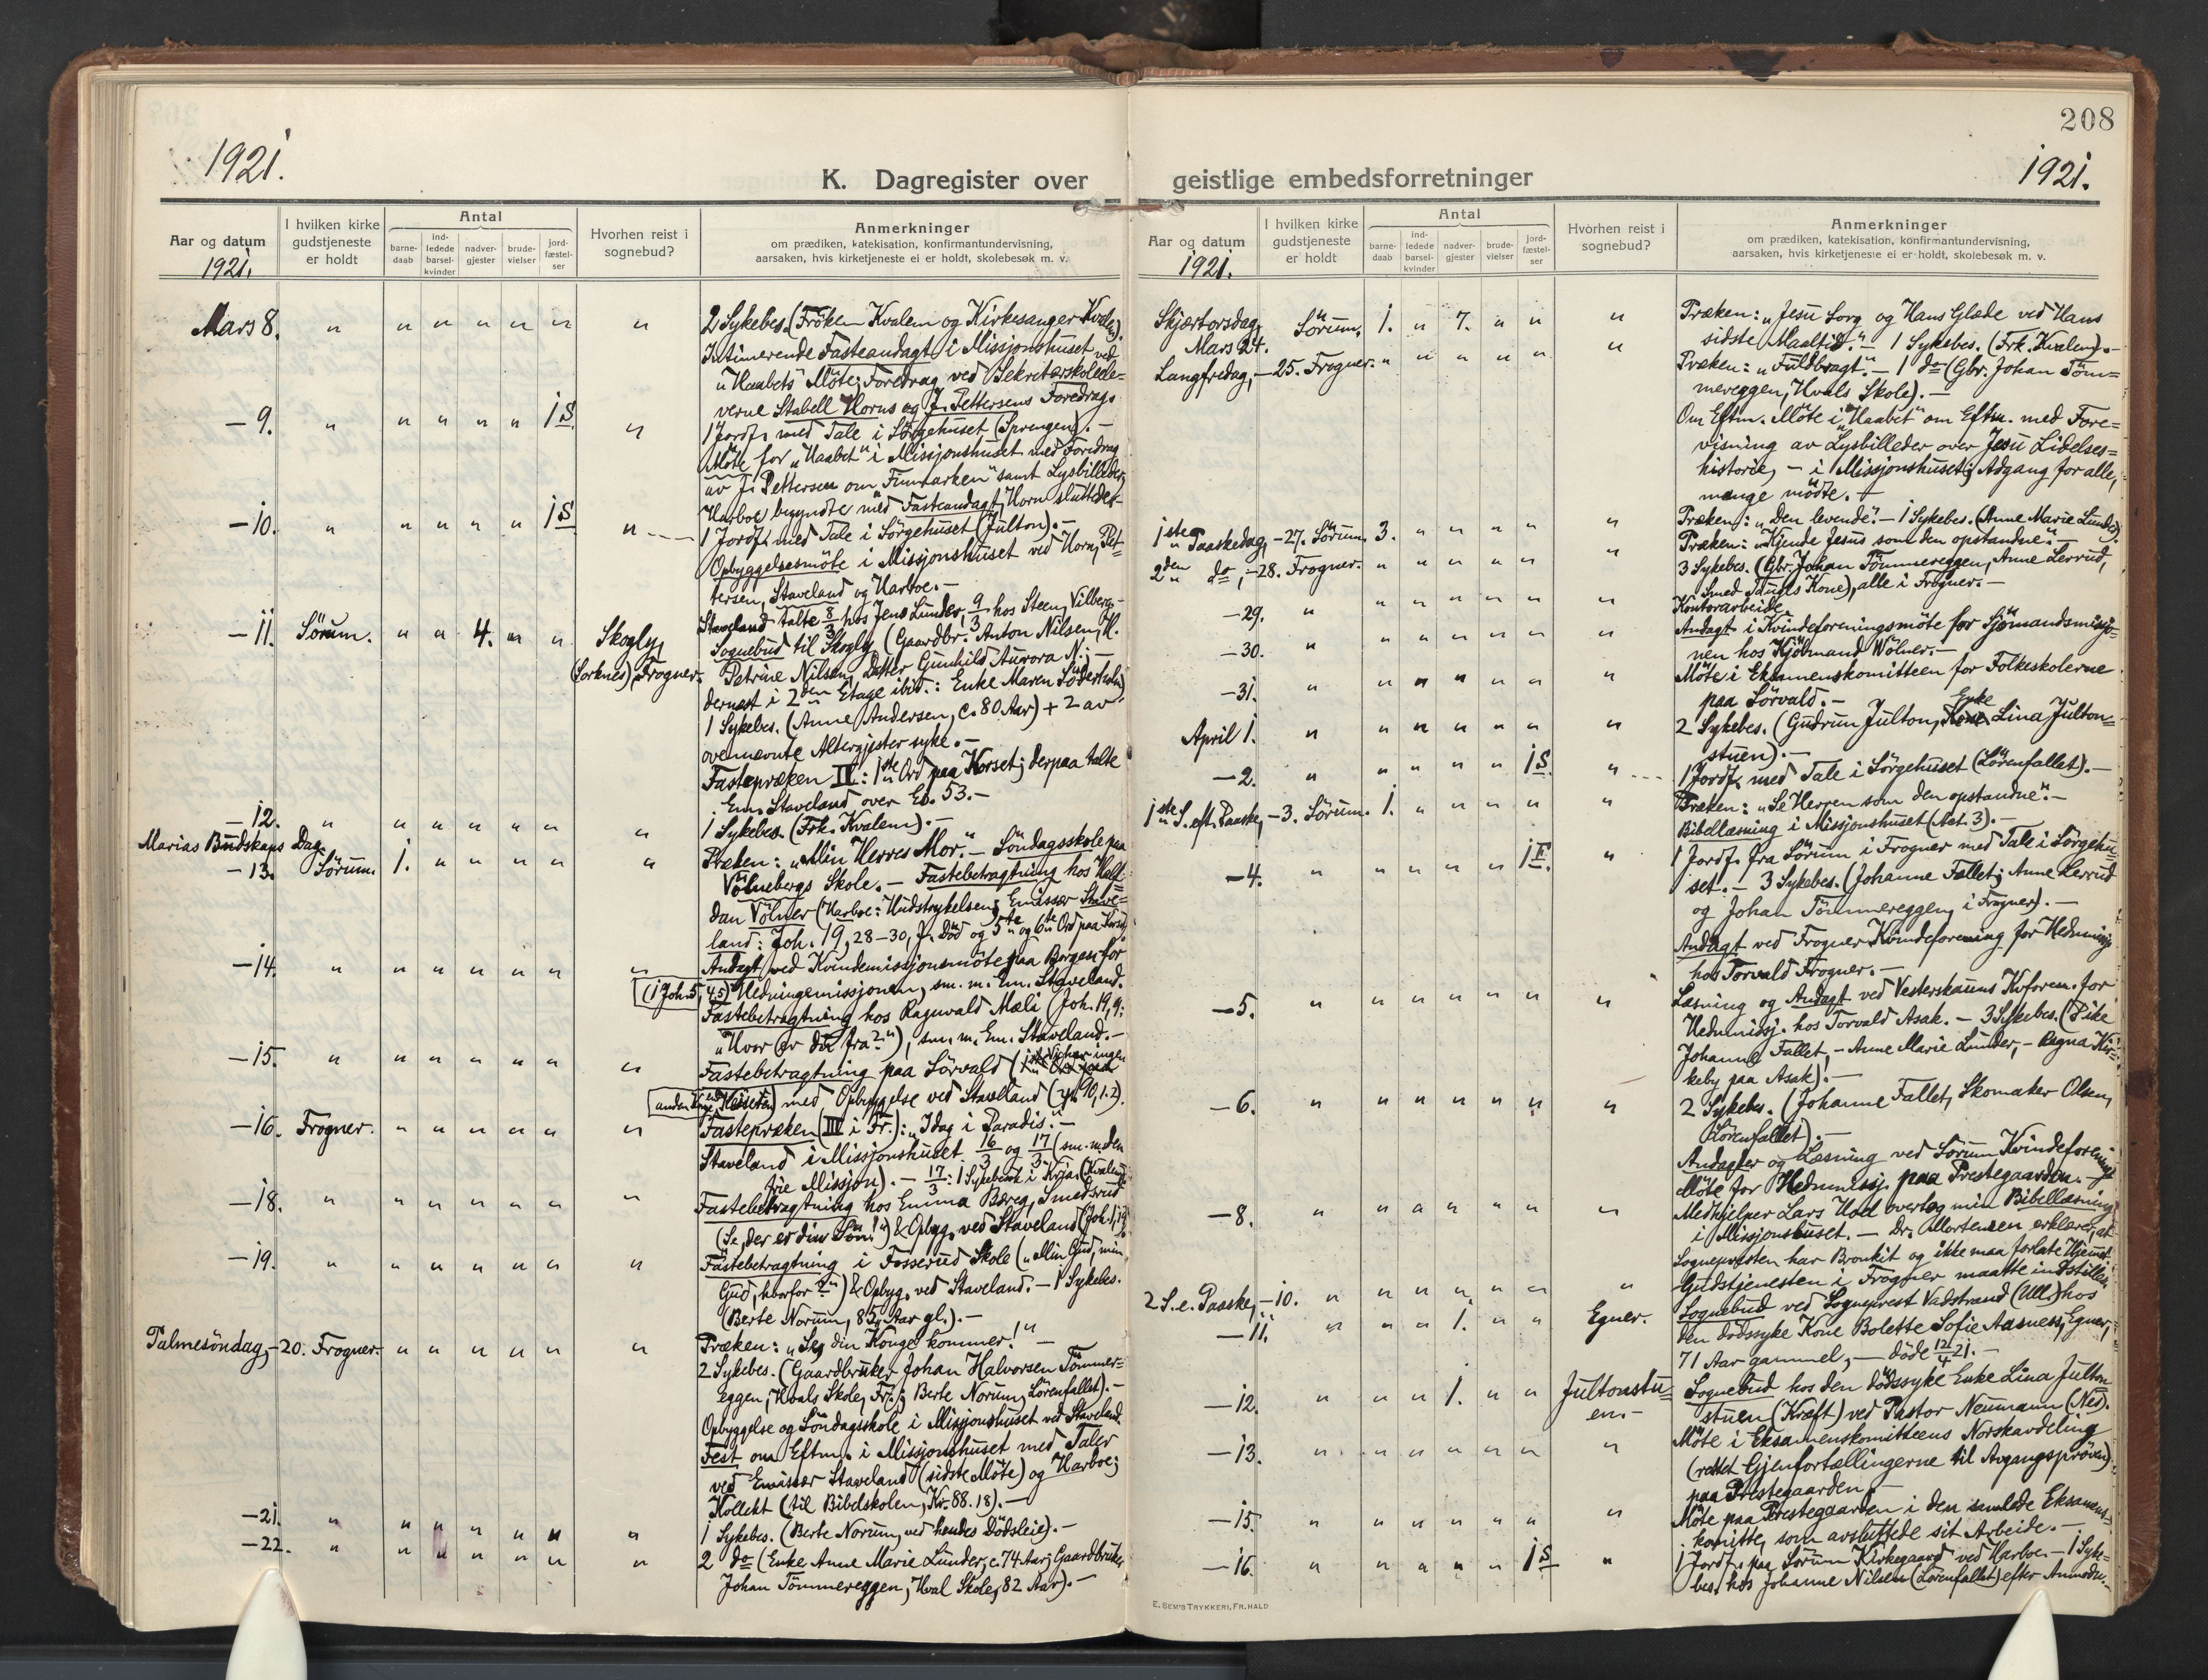 208
1921.
K. Dagregister over
Aar og datum
1921.
I hvilken kirke gudstjeneste er holdt
Antal
barne-daab
ind-ledede barsel-kvinder
nadver-gjester
brude-vielser
jord-fæstel-ser
Hvorhen reist i sognebud?
Anmerkninger
om prædiken, katekisation, konfirmantundervisning,
aarsaken, hvis kirketjeneste ei er holdt, skolebesøk m. v.
Mars 8. " " " " " " " 2 Sykebes. (Fröken Kvalem og Kirkesanger Kvalem).
Intimerende Fasteandagt i Missjonshuset ved
"Haabets" Möte; Foredrag ved Sekretærskoleele-
verne Stabell Horns og J. Pettersens Foredrag.
— 9. " " " " " 1 S. " 1 Jordf. med Tale i Sörgehuset (Sprengen). —
Möte for "Haabet" i Missjonshuset med Foredrag
av J. Pettersen om "Finmarken" samt Lysbilleder,
Harboe begyndte med Fasteandagt, Horn sluttede. —
— 10. " " " " " 1 S. " 1 Jordf. med Tale i Sörgehuset (Julton). —
Opbyggelsesmöte i Missjonshuset ved Horn, Pet-
tersen, Staveland og Harboe. —
Staveland talte 8/3 hos Jens Lunder, 9/3 hos Steen, Vilberg. —
— 11. Sörum. " " 4. " " Skogly, Sognebud til Skogly (Gaardbr. Anton Nilsen, H.
(Sorknes), Frogner. Petrine Nilsen, Datter Gunhild Aurora N.; —
dernæst i 2den Etage ibid.: Enke Maren Söderholm)
1 Sykebes. (Anne Andersen, c. 80 Aar) + 2 av
ovennævnte Altergjester syke. —
Fastepræken IV: 1ste Ord paa Korset; derpaa talte
Em. Staveland over Es. 53. —
— 12. " " " " " " " 1 Sykebes. (Frk. Kvalem). —
Marias Budskaps Dag
— 13. Sörum. 1. " " " " " Præken: "Min Herres Mor." — Söndagsskole paa
Völnebergs Skole. — Fastebetragtning hos Half-
dan Völner (Harboe: Hudstrykelsen; Emissær Stave-
land: Joh. 19, 28–30, J. Död og 5te og 6te Ord paa Korset).
— 14. " " " " " " " Andagt ved Kvindemissjonsmöte paa Borgen for
(1 Joh. 5, 4.5) Hedningemissjonen, sm. m. Em. Staveland.
Fastebetragtning hos Ragnvald Mæli (Joh. 19, 9:
"Hvor er du fra?"), sm. m. Em. Staveland. —
— 15. " " " " " " " Fastebetragtning paa Sörvald (Vi har ingen
anden Konge end Keiseren) med Opbyggelse ved Staveland (ψ. 90, 1.2).
— 16. Frogner. " " " " " " Fastepræken (III i Fr.): "Idag i Paradis". —
Staveland i Missjonshuset 16/3 og 17/3 (sm. m. den
frie Missjon). — 17/3: 1 Sykebesök i Krjar (Kvalem)
— 18. " " " " " " " Fastebetragtning hos Emma Bæreg, Smedsrud
(Se, der er din Sön!") & Opbyg. ved Staveland (Joh. 1,
— 19. " " " " " " " Fastebetragtning i Fosserud Skole ("Min Gud, min
Gud, hvorfor?") & Opbyg. ved Staveland. — 1 Sykebes.
(Berte Norum, 85 Aar gl.). —
Palmesöndag, — 20. Frogner. " " " " " " Præken: "Se, din Konge kommer!" —
2 Sykebes. (Gaardbruker Johan Halvorsen Tömmer-
eggen, Hvals Skole, Fr.; Berte Norum, Sörenfallet). —
Opbyggelse og Söndagsskole i Missjonshuset ved Staveland.
Fest om Eftm. i Missjonshuset med Taler
ved Emissær Staveland (sidste Möte) og Harboe;
Kollekt (til Bibelskolen, Kr. 88.18). —
— 21. " " " " " " " 1 Sykebes. (Berte Norum, ved hendes Dödsleie). —
— 22. " " " " " " " 2 do (Enke Anne Marie Lunder, c. 74 Aar; Gaardbruker
Johan Tömmereggen, Hval Skole, 82 Aar). —
geistlige embedsforretninger
1921.
Aar og datum
1921.
I hvilken kirke gudstjeneste er holdt
Antal
barne-daab
ind-ledede barsel-kvinder
nadver-gjester
brude-vielser
jord-fæstel-ser
Hvorhen reist i sognebud?
Anmerkninger
om prædiken, katekisation, konfirmantundervisning,
aarsaken, hvis kirketjeneste ei er holdt, skolebesøk m. v.
Skjærtorsdag, Mars 24. Sörum. 1. " 7. " " " Præken: "Jesu Sorg og Hans Glæde ved Hans
sidste Maaltid." — 1 Sykebes. (Frk. Kvalem). —
Langfredag, — 25. Frogner. " " " " " " Præken: "Fuldbragt." — 1 do (Gbr. Johan Töm-
mereggen, Hvals Skole). —
Om Eftm. Möte i "Haabet" om Eftm. med Fore-
visning av Lysbilleder over Jesu Lidelses-
historie, — i Missjonshuset; Adgang for alle,
mange mödte. —
1ste Paaskedag, — 27. Sörum. 3. " " " " " Præken: "Den levende". — 1 Sykebes. (Anne Marie Lunder).
2den do, — 28. Frogner. " " " " " " Præken: "Kjende Jesus som den opstandne". —
3 Sykebes. (Gbr. Johan Tömmereggen, Anne Lerrud,
Smed Kone), alle i Frogner. —
— 29. " " " " " " " Kontorarbeide.
— 30. " " " " " " " Andagt i Kvindeforeningsmöte for Sjömandsmissjo-
nen hos Völner. —
— 31. " " " " " " " Möte i Eksamenskomitteen for Folkeskolerne
paa Sörvald. —
April 1. " " " " " " " 2 Sykebes. (Gudrun Julton, Enke Lina Julton-
stuen). —
— 2. " " " " " 1 S. " 1 Jordf. med Tale i Sörgehuset (Sörenfallet). —
1ste S. eft. Paaske, — 3. Sörum. 1. " " " " " Præken: "Se Herren som den opstandne". —
Bibellæsning i Missjonshuset (Act. 3). —
— 4. " " " " " 1 F. " 1 Jordf. fra Sörum i Frogner med Tale i Sörgehu-
set. — 3 Sykebes. (Johanne Fallet; Anne Lerrud
og Johan Tömmereggen, i Frogner). —
Andagt ved Frogner Kvindeforening for Hednmissj.
hos Torvald Frogner. —
— 5. " " " " " " " Læsning og Andagt ved Vesterskauns Kvforen. for
Hednmissj. hos Torvald Asak. — 3 Sykebes. (Pike
Johanne Fallet, — Anne Marie Lunder, — Ragna Kir-
keby paa Asak). —
— 6. " " " " " " " 2 Sykebes. (Johanne Fallet, Skomaker Olsen,
Sörenfallet). —
Andagter og Læsning ved Sörum Kvindeforenings
Möte for Hednmissj. paa Prestegaarden. —
— 8. " " " " " " " Medhjelper Lars Hod overtog min Bibellæsning
i Missjonshuset. — Dr. Mortensen erklærer, at
Sognepresten har Bronkit og ikke maa forlate Hjemmet.
2 S. e. Paaske, — 10. " " " " " " " Gudstjenesten i Frogner maatte indstilles.
— 11. " " " 1. " " Egner. Sognebud ved Sogneprest Vadstrand (Ull.) hos
den dödssyke Kone Bolette Sofie Aasness, Egner,
71 Aar gammel, — döde 12/4 21. —
— 12. " " " 1. " " Jultonstu-en. — Sognebud hos den dödssyke Enke Lina Julton-
stuen (Kræft) ved Pastor Neumann (Nes).
— 13. " " " " " " " Möte i Eksamenskomitteens Norskavdeling
(rettet Gjenfortællingerne til Avgangspröven)
paa Prestegaarden. —
— 15. " " " " " " " Möte paa Prestegaarden i den samlede Eksamens-
komitte, som avsluttede sit Arbeide. —
— 16. " " " " " 1 S " 1 Jordf. paa Sörum Kirkegaard ved Harboe. — 1 Syke-
bes. hos Johanne Nilsen (Sörenfallet) efter Anmodn. —
E. SEM'S TRYKKERI, FR.HALD